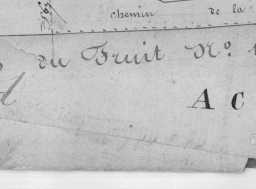 chemin de la
du Fruit No.
A C